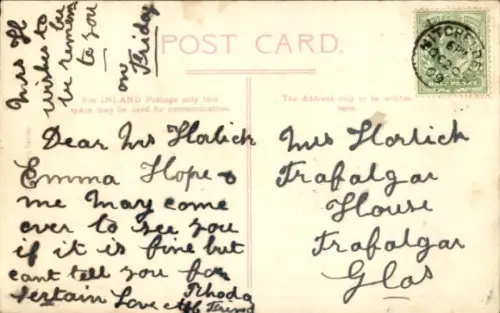 Mrs H
wishes to be
be remem
to you
on
Friday
POST CARD.
For INLAND Postage only this
space may be used for communication.
The Address only to be written
here.
Dear Mrs Horlick
Emma Hope &
me May come
over to see you
if it is fine but
cant tell you for
sertain Love
Rhoda
Mrs Horlick
Trafalgar
House
Trafalgar
Glos